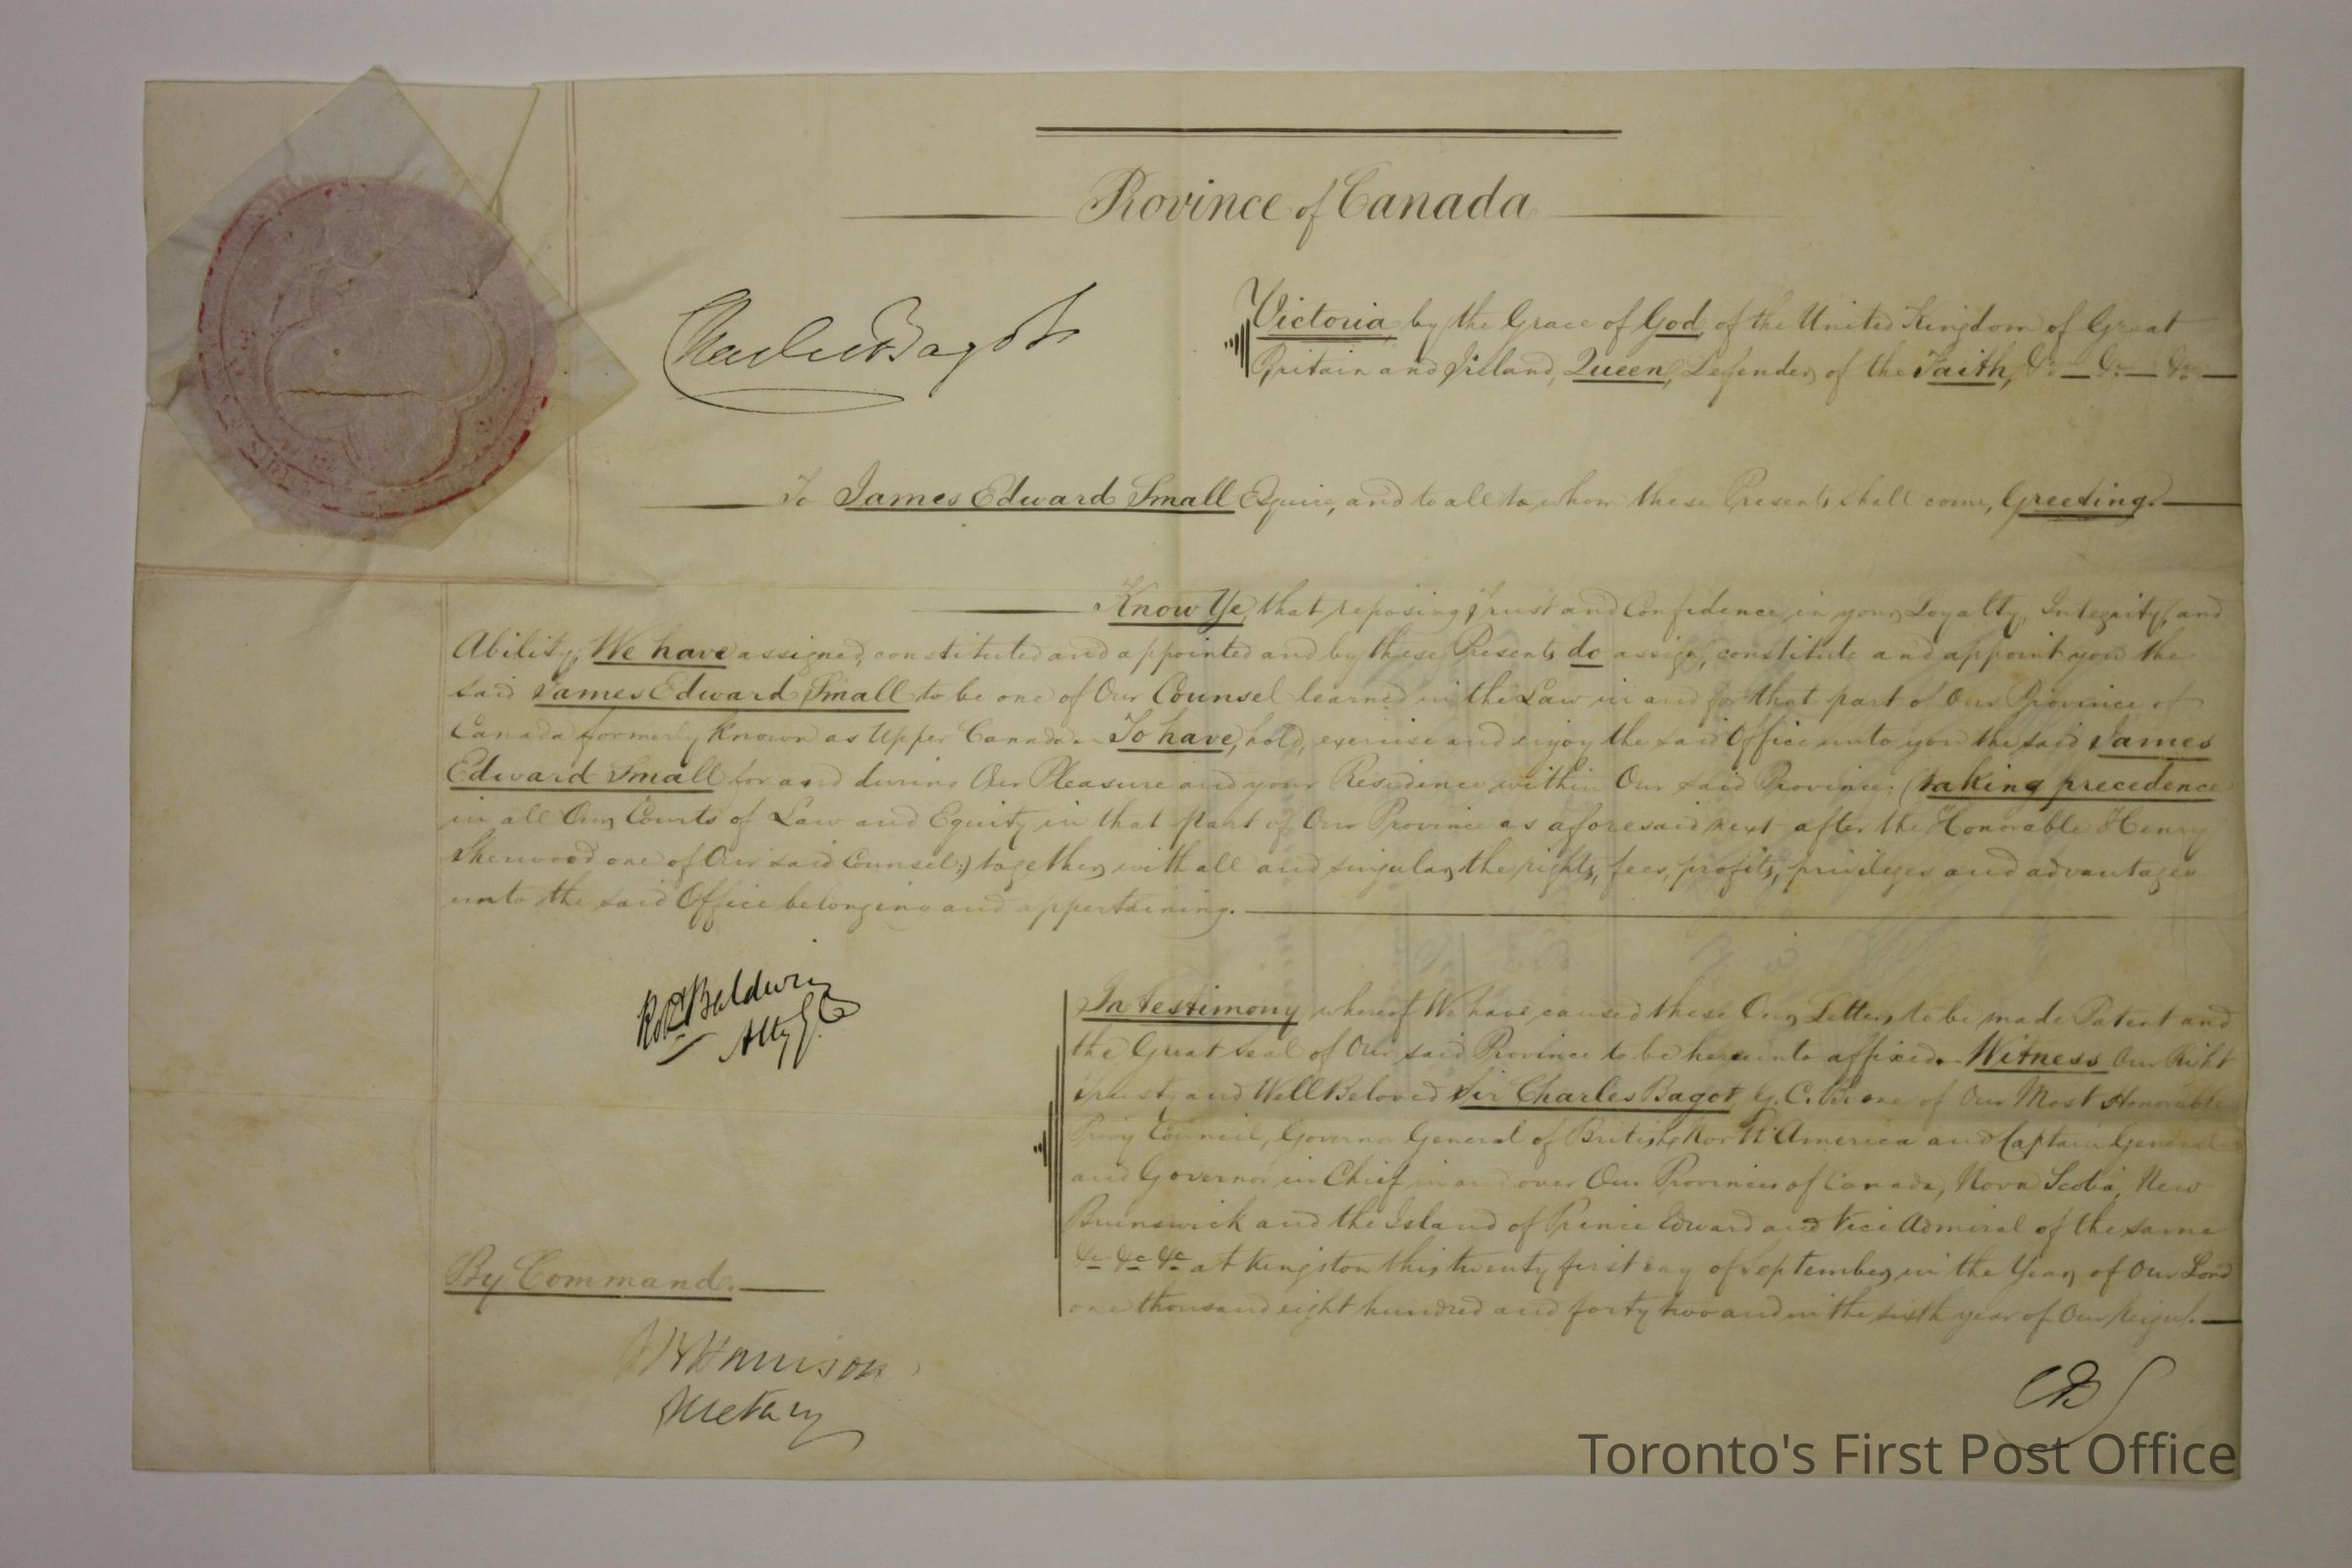 Province of Canada
Charles Bagot
Victoria by the Grace of God, of the United Kingdom of Great
Britain and Ireland, Queen, Defender of the Faith, &c — &c — &c —
To James Edward Small Esquire, and to all to whom these Presents shall come, Greeting. —
Know Ye, that reposing Trust and Confidence in your Loyalty, Integrity, and
Ability, We have assigned, constituted and appointed and by these Presents do assign, constitute and appoint you the
said James Edward Small to be one of Our Counsel learned in the Law in and for that part of Our Province of
Canada formerly known as Upper Canada. To have, hold, exercise and enjoy the said Office unto you the said James
Edward Small for and during Our Pleasure and your Residence within Our said Province; (taking precedence
in all Our Courts of Law and Equity in that part of Our Province as aforesaid next after the Honorable Henry
Sherwood one of Our said Counsel;) together with all and singular the rights, fees, profits, privileges and advantages
unto the said Office belonging and appertaining. —
Robt Baldwin
Atty G.
In testimony whereof We have caused these Our Letters to be made Patent and
the Great Seal of Our said Province to be hereunto affixed. Witness Our Right
Trusty and Well Beloved Sir Charles Bagot G.C.B. one of Our Most Honorable
Privy Council, Governor General of British North America and Captain General
and Governor in Chief in and over Our Provinces of Canada, Nova Scotia, New
Brunswick and the Island of Prince Edward and Vice Admiral of the same
&c &c &c at Kingston this twenty first day of September, in the Year of Our Lord
one thousand eight hundred and forty two and in the sixth year of Our Reign. —
By Command. —
Harrison
Secretary
CB
Toronto's First Post Office